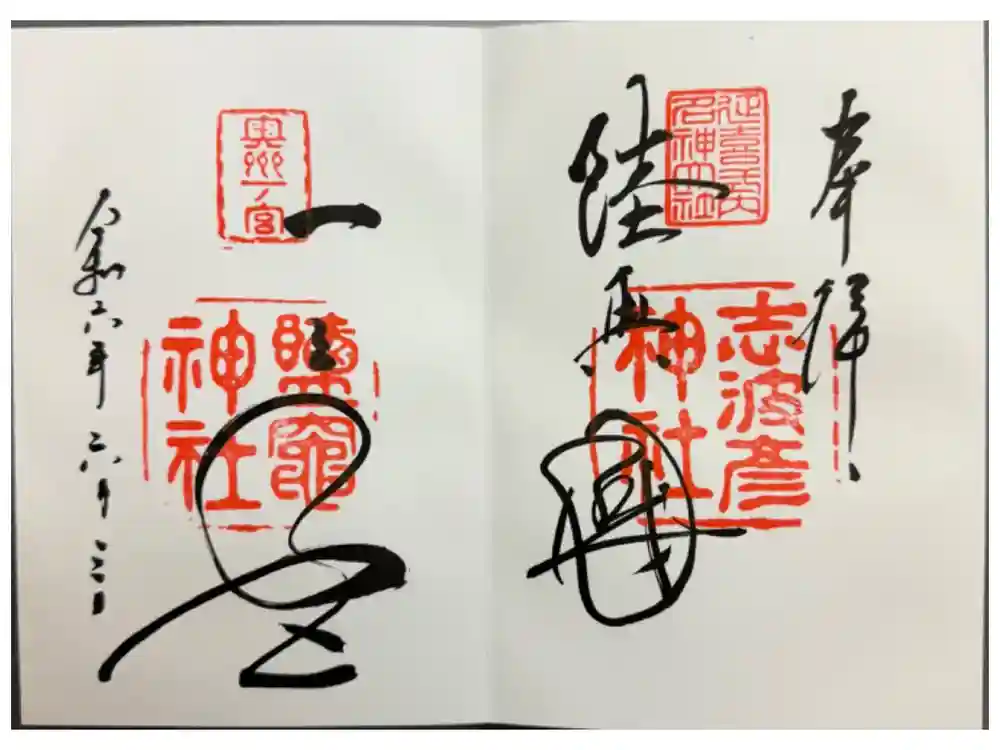 奉拝
延喜式内
名神大社
陸奥國
志波彦
神社
奥州
一ノ宮
一之宮
鹽竈
神社
令和六年六月